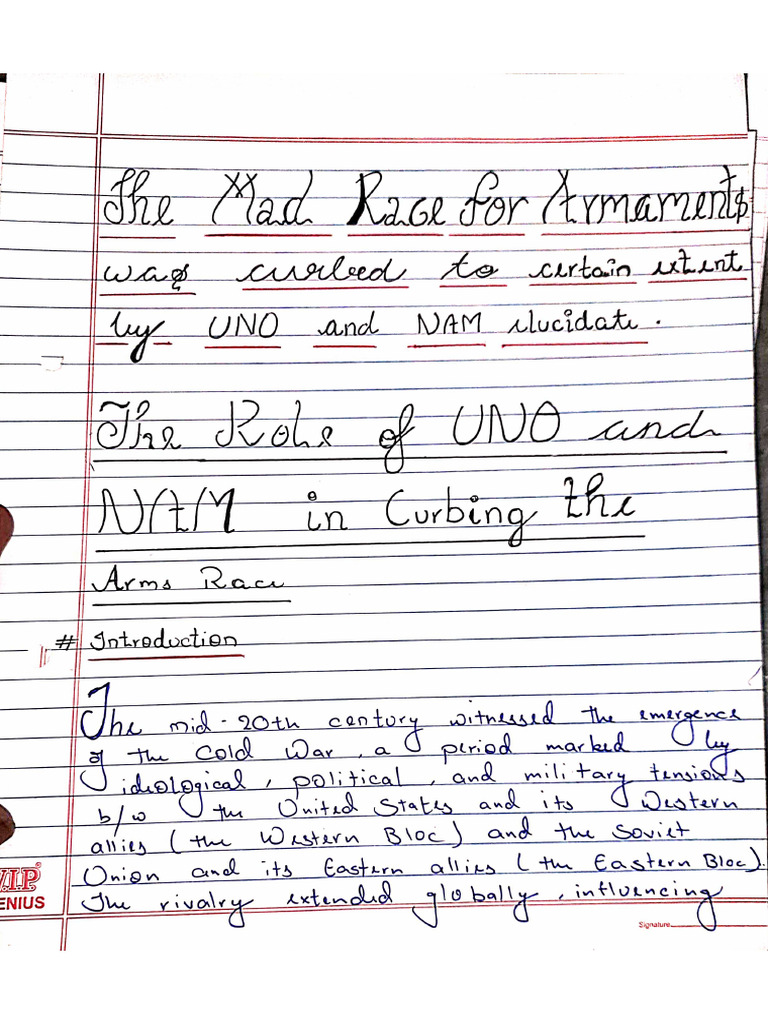 The Mad Race for Armaments
was curbed to certain extent
by UNO and NAM elucidate.
The Role of UNO and
NAM in Curbing the
Arms Race
# Introduction
The mid-20th century witnessed the emergence
of the Cold War, a period marked by
ideological, political, and military tensions
b/w the United States and its Western
allies (the Western Bloc) and the Soviet
Union and its Eastern allies (the Eastern Bloc).
The rivalry extended globally, influencing
V.I.P
ENIUS
Signature